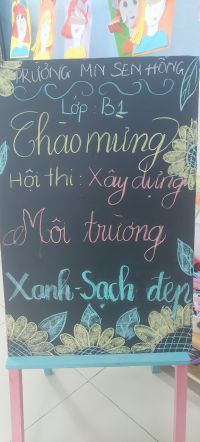 TRƯỜNG MN SEN HỒNG
Lớp : B1
Chào mừng
Hội thi : Xây dựng
Môi trường
Xanh-Sạch đẹp